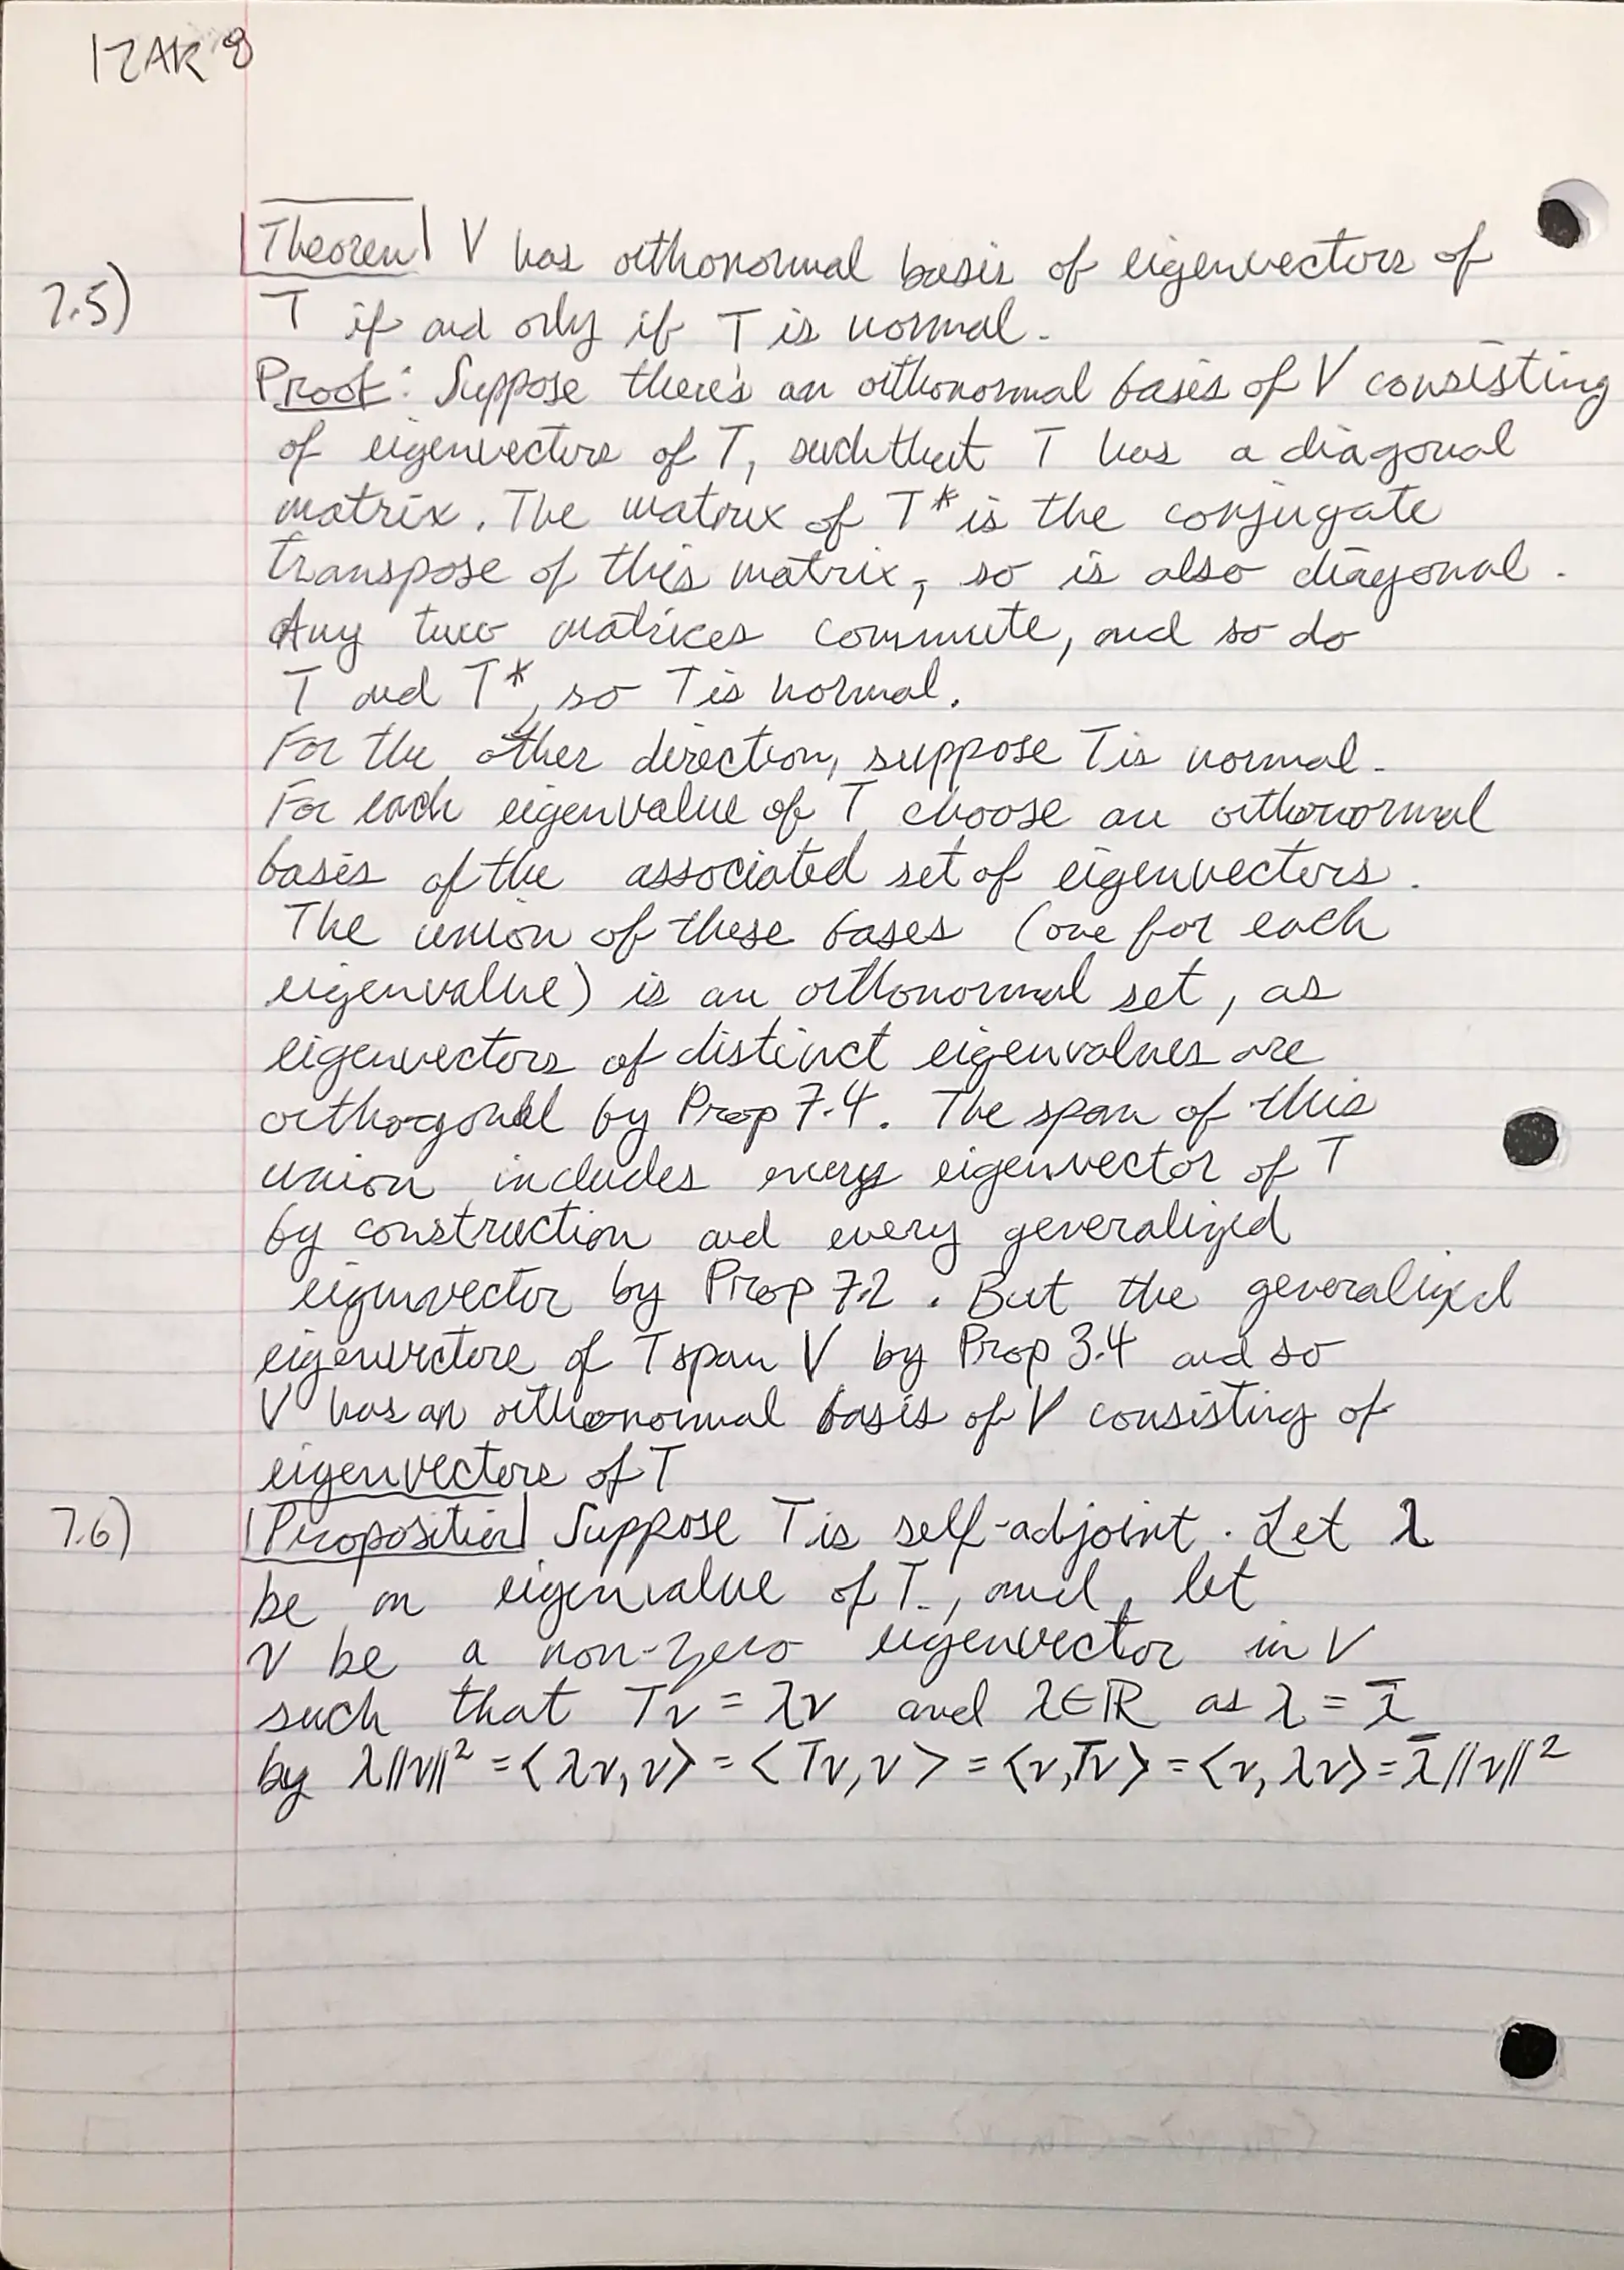 IZAK 8
Theorem V has orthonormal basis of eigenvectors of
7.5) T if and only if T is normal.
Proof: Suppose there's an orthonormal basis of V consisting
of eigenvectors of T, such that T has a diagonal
matrix. The matrix of T* is the conjugate
transpose of this matrix, so is also diagonal.
Any two matrices commute, and so do
T and T*, so T is normal.
For the other direction, suppose T is normal.
For each eigenvalue of T choose an orthonormal
basis of the associated set of eigenvectors.
The union of these bases (one for each
eigenvalue) is an orthonormal set, as
eigenvectors of distinct eigenvalues are
orthogonal by Prop 7.4. The span of this
union includes every eigenvector of T
by construction and every generalized
eigenvector by Prop 7.2. But the generalized
eigenvectors of T span V by Prop 3.4 and so
V has an orthonormal basis of V consisting of
eigenvectors of T
7.6) Proposition Suppose T is self-adjoint. Let λ
be an eigenvalue of T, and let
v be a non-zero eigenvector in V
such that Tv = λv and λ∈ℝ as λ = λ̄
by λ||v||² = <λv,v> = <Tv,v> = <v,Tv> = <v,λv> = λ̄||v||²